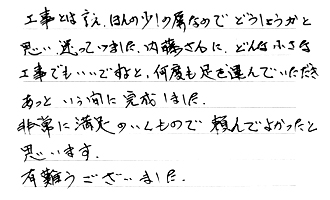 工事とは言え、ほんの少しの事なので どうしようかと
思い 迷っていました。内藤さんに、どんな小さな
工事でもいいですねと、何度も足を運んでいただき
あっと いう間に完成しました。
非常に満足のいくもので 頼んでよかったと
思います。
有難うございました。